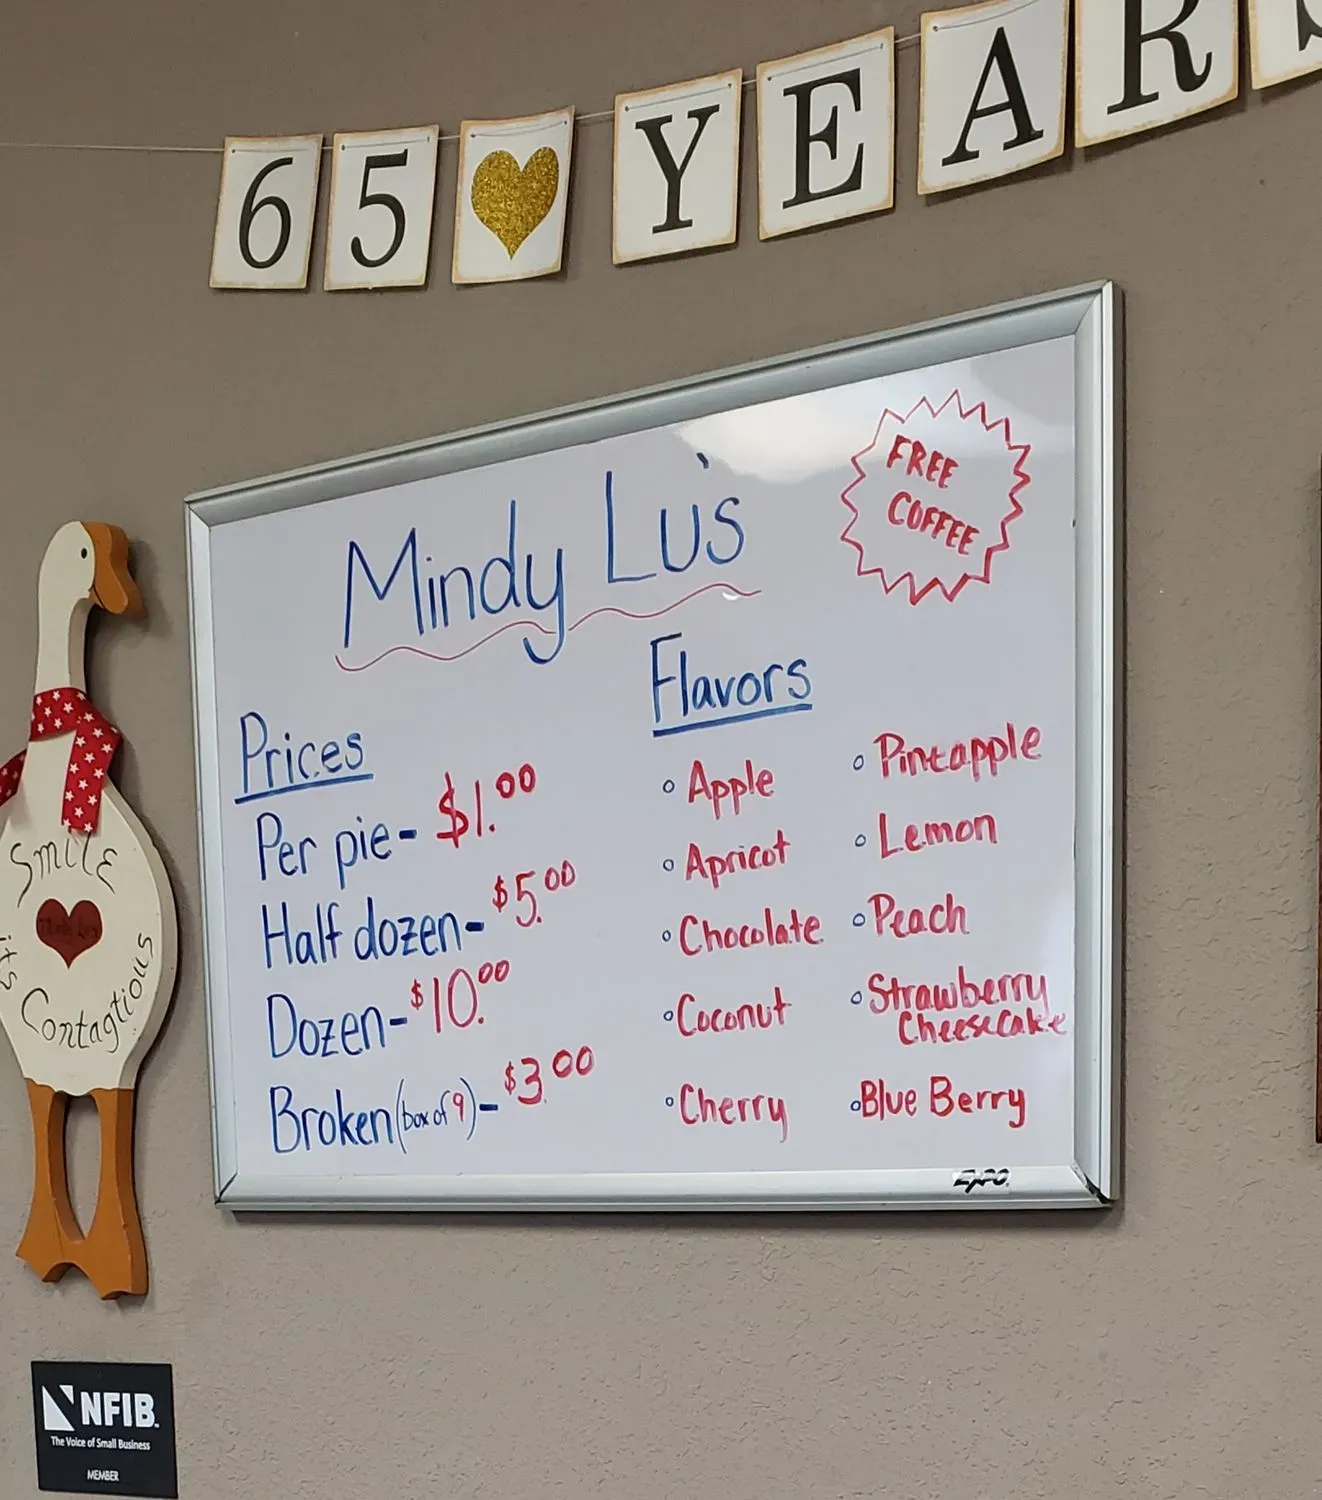 65 YEARS
Mindy Lu's
FREE
COFFEE
Prices
Per pie- $1.00
Half dozen- $5.00
Dozen- $10.00
Broken (box of 9) - $3.00
Flavors
Apple
Apricot
Chocolate
Coconut
Cherry
Pineapple
Lemon
Peach
Strawberry
Cheesecake
Blue Berry
EXPO
Smile
Mindy Lu's
it's
Contagtious
NFIB
The Voice of Small Business
MEMBER